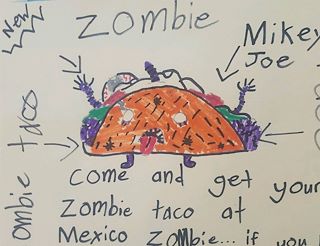 New
Zombie
Mikey
Joe
ombie taco
come and get your
Zombie taco at
Mexico Zombie... if you